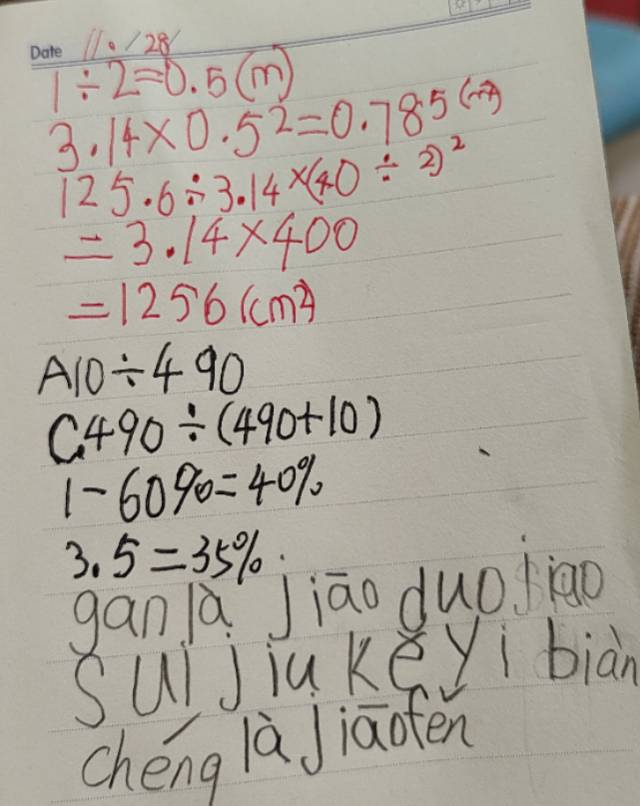 Date 11./28/
1÷2=0.5(m)
3.14×0.5²=0.785(m²)
125.6÷3.14×(40÷2)²
=3.14×400
=1256(cm²)
A10÷490
C.490÷(490+10)
1-60%=40%
3.5=35%.
gan là Jiāo duo jiao
Sui Jiu kěyǐ biàn
chéng là Jiāofěn